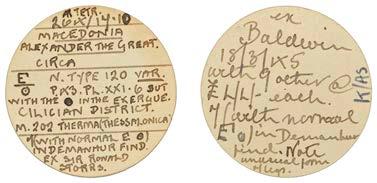 AR TETR.
26x/17·10
MACEDONIA
ALEXANDER THE GREAT.
CIRCA
E N. TYPE 120 VAR.
P. XXI·6 BUT
WITH THE IN THE EXERGUE.
CILICIAN DISTRICT.
M. 202 THERMA (THESSALONICA)
WITH NORMAL E
IN DEMANHUR FIND.
EX SIR RONALD
STORRS.
ex
Baldwin
with 9 other @
£4/4/- each.
with normal
E in Demanhur
find. Note
unusual form
K/AS